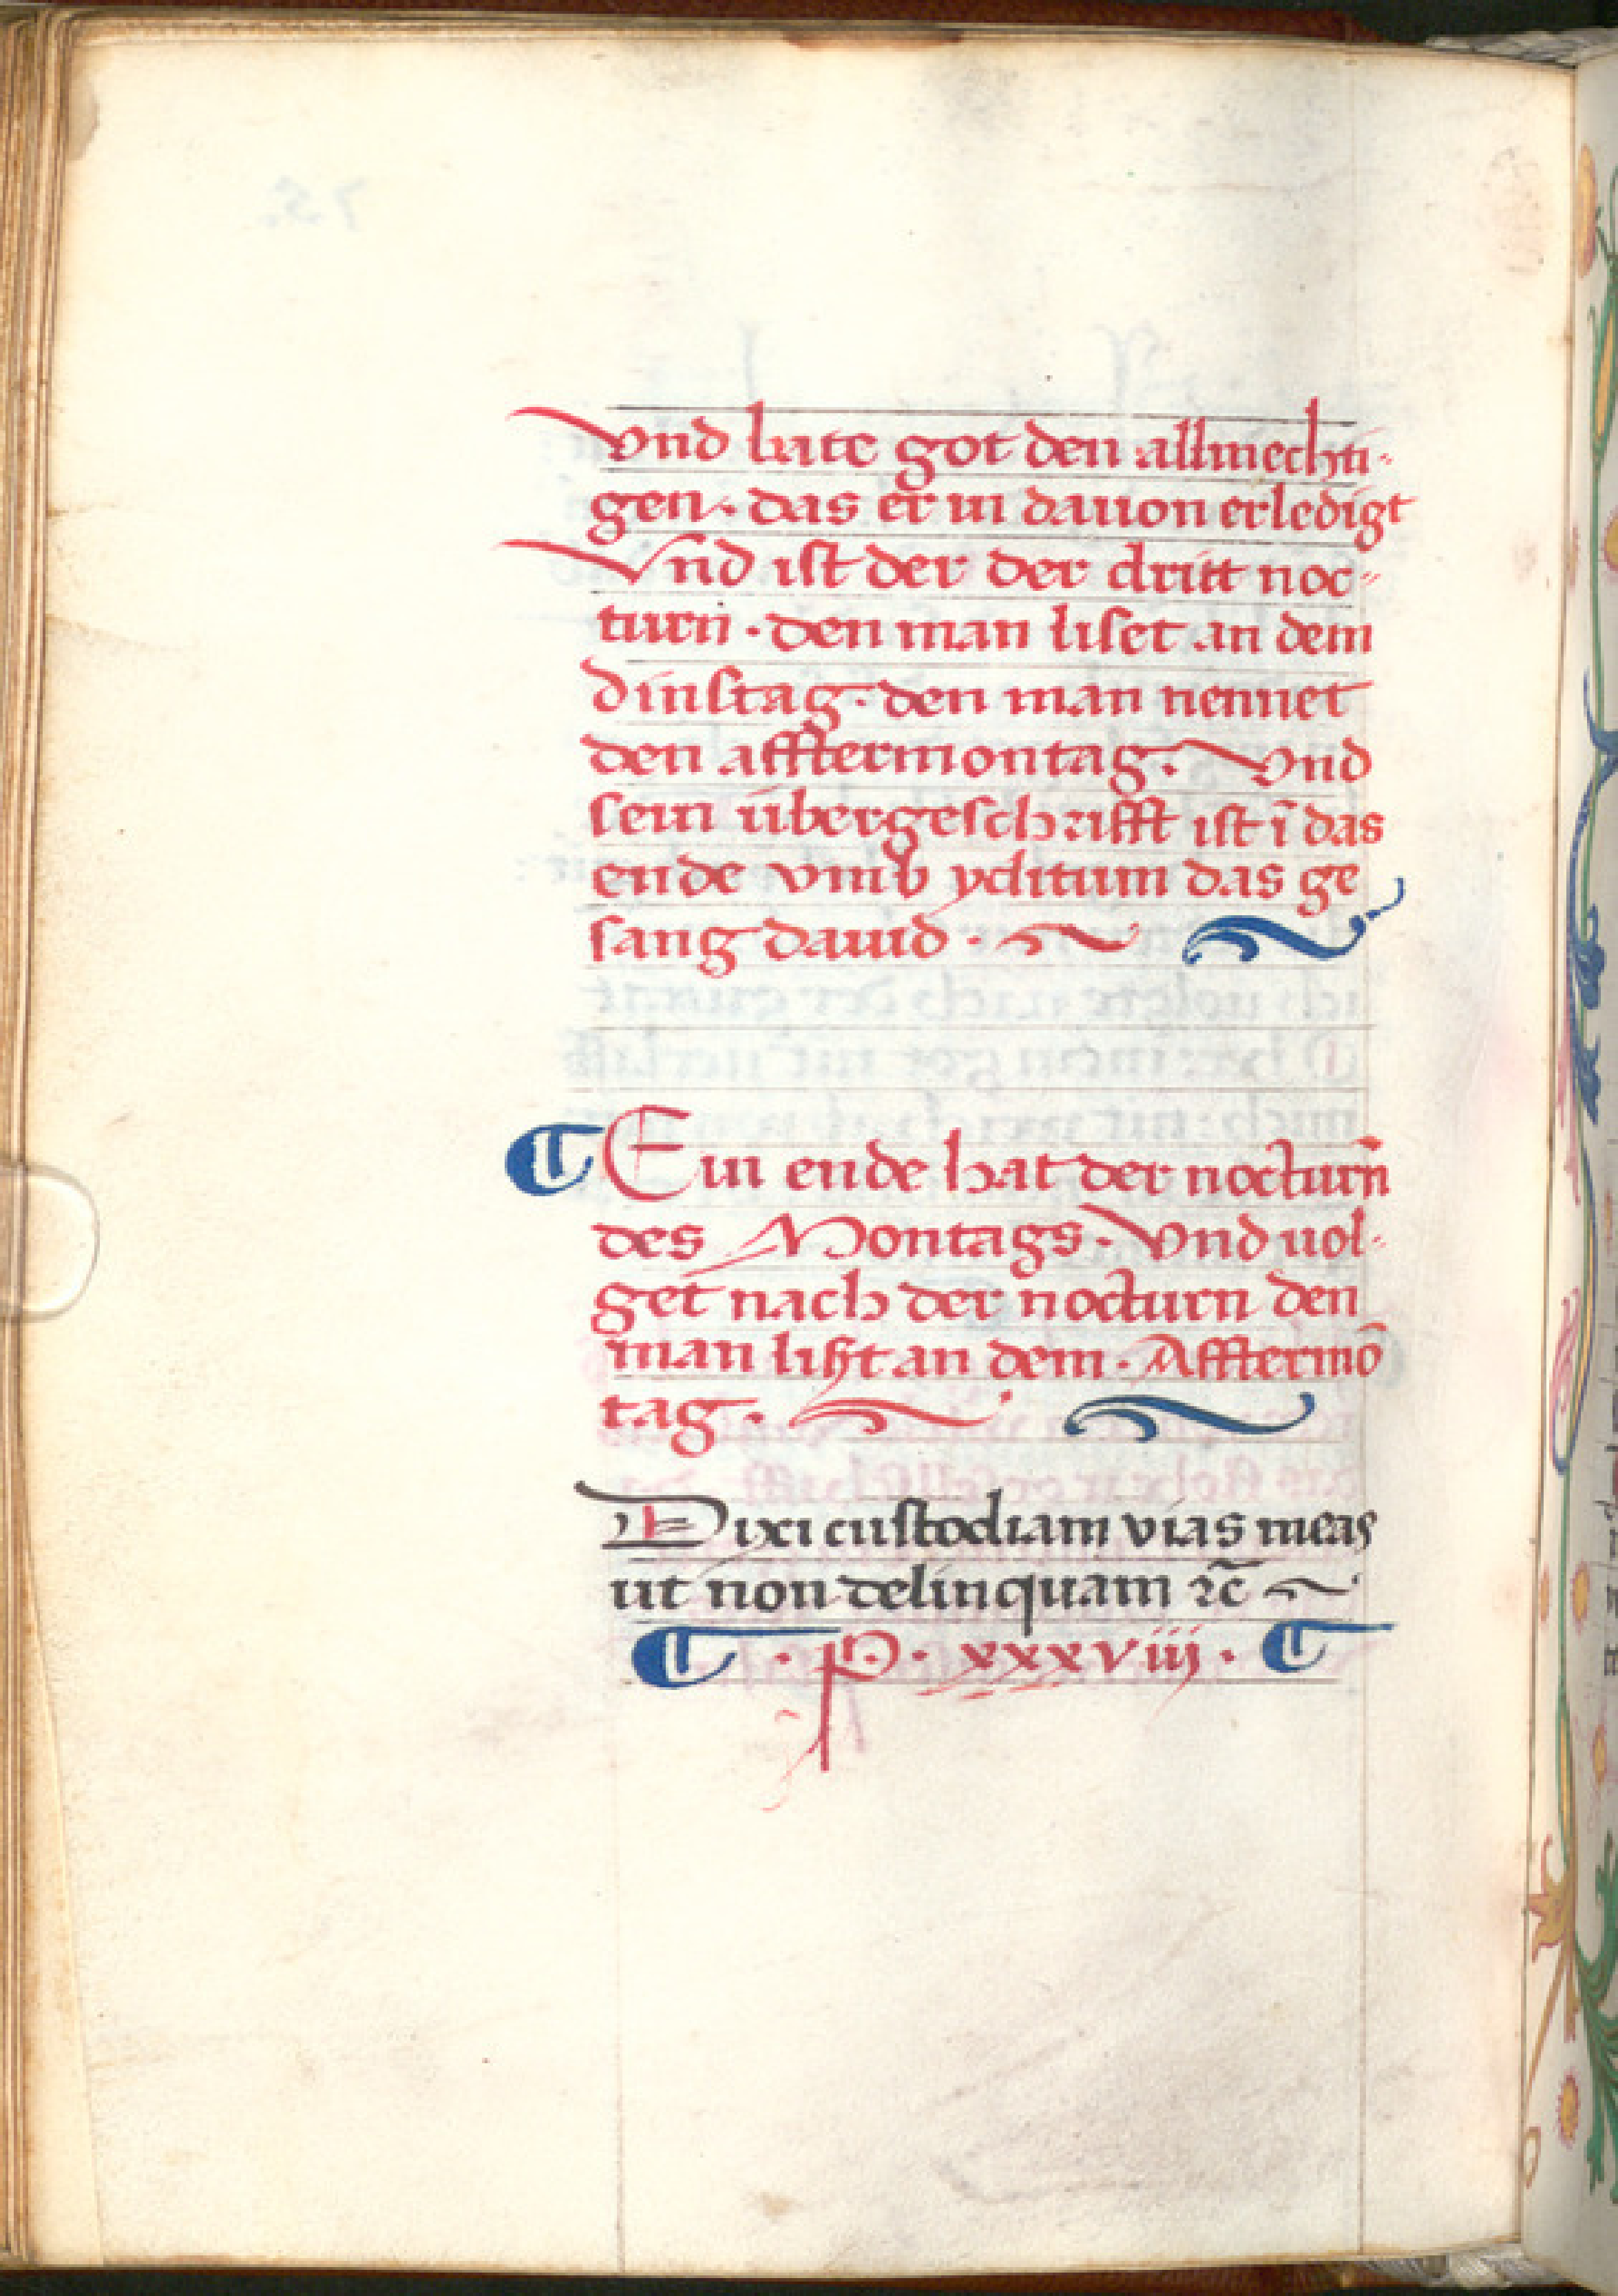 vnd bate got den allmechti-
gen · das er in dauon erledigt
Vnd ist der der dritt noc-
turn̄ · den man liset an dem
dinstag · den man nennet
den afftermontag · Vnd
sein übergeschrifft ist ī das
ende vmb yditum das ge
sang dauid ·
Ein ende hat der nocturn̄
des Montags · Vnd uol-
get nach der nocturn den
man lißt an dem · Afftermō
tag ·
Dixi custodiam vias meas
ut non delinquam ⁊c̄
· P · xxxviij ·